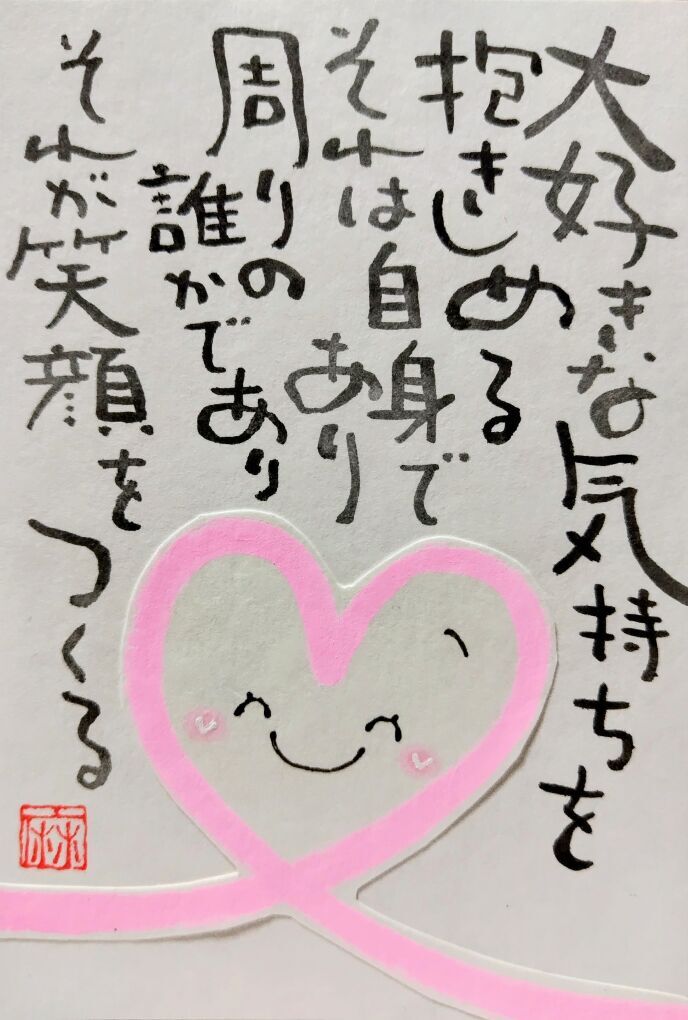 大好きな気持ちを
抱きしめる
それは自身で
あり
周りの
誰かであり
それが笑顔を
つくる